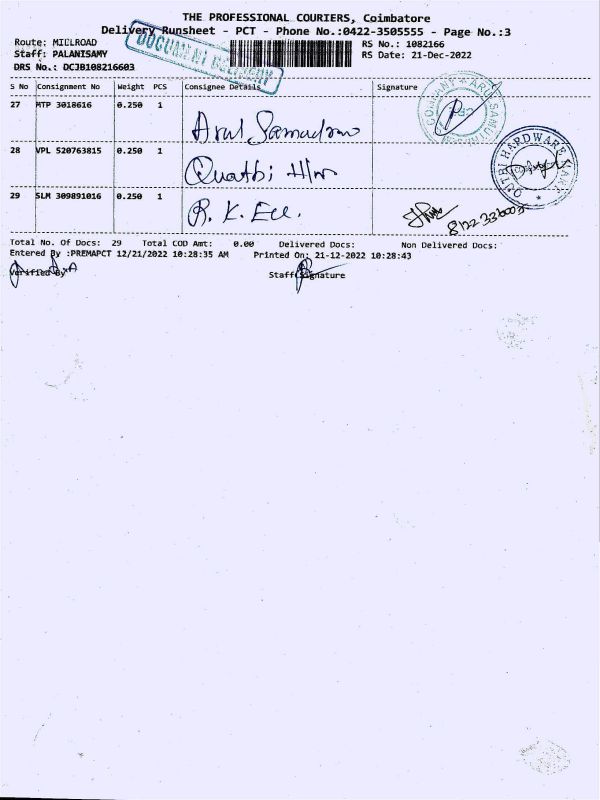 THE PROFESSIONAL COURIERS, Coimbatore
Delivery Runsheet - PCT - Phone No.:0422-3505555 - Page No.:3
Route: MILLROAD
RS No.: 1082166
Staff: PALANISAMY
RS Date: 21-Dec-2022
DRS No.: DCJB108216603
DOCUMENT DELIVERY
S No Consignment No Weight PCS Consignee Details Signature
27 MTP 3018616 0.250 1 Arul
28 VPL 520763815 0.250 1 H/W
QUTBI HARDWARE MART
29 SLM 309891016 0.250 1 R. K. Ele.
Total No. Of Docs: 29 Total COD Amt: 0.00 Delivered Docs: Non Delivered Docs:
Entered By :PREMAPCT 12/21/2022 10:28:35 AM Printed On: 21-12-2022 10:28:43
Verified By
Staff Signature